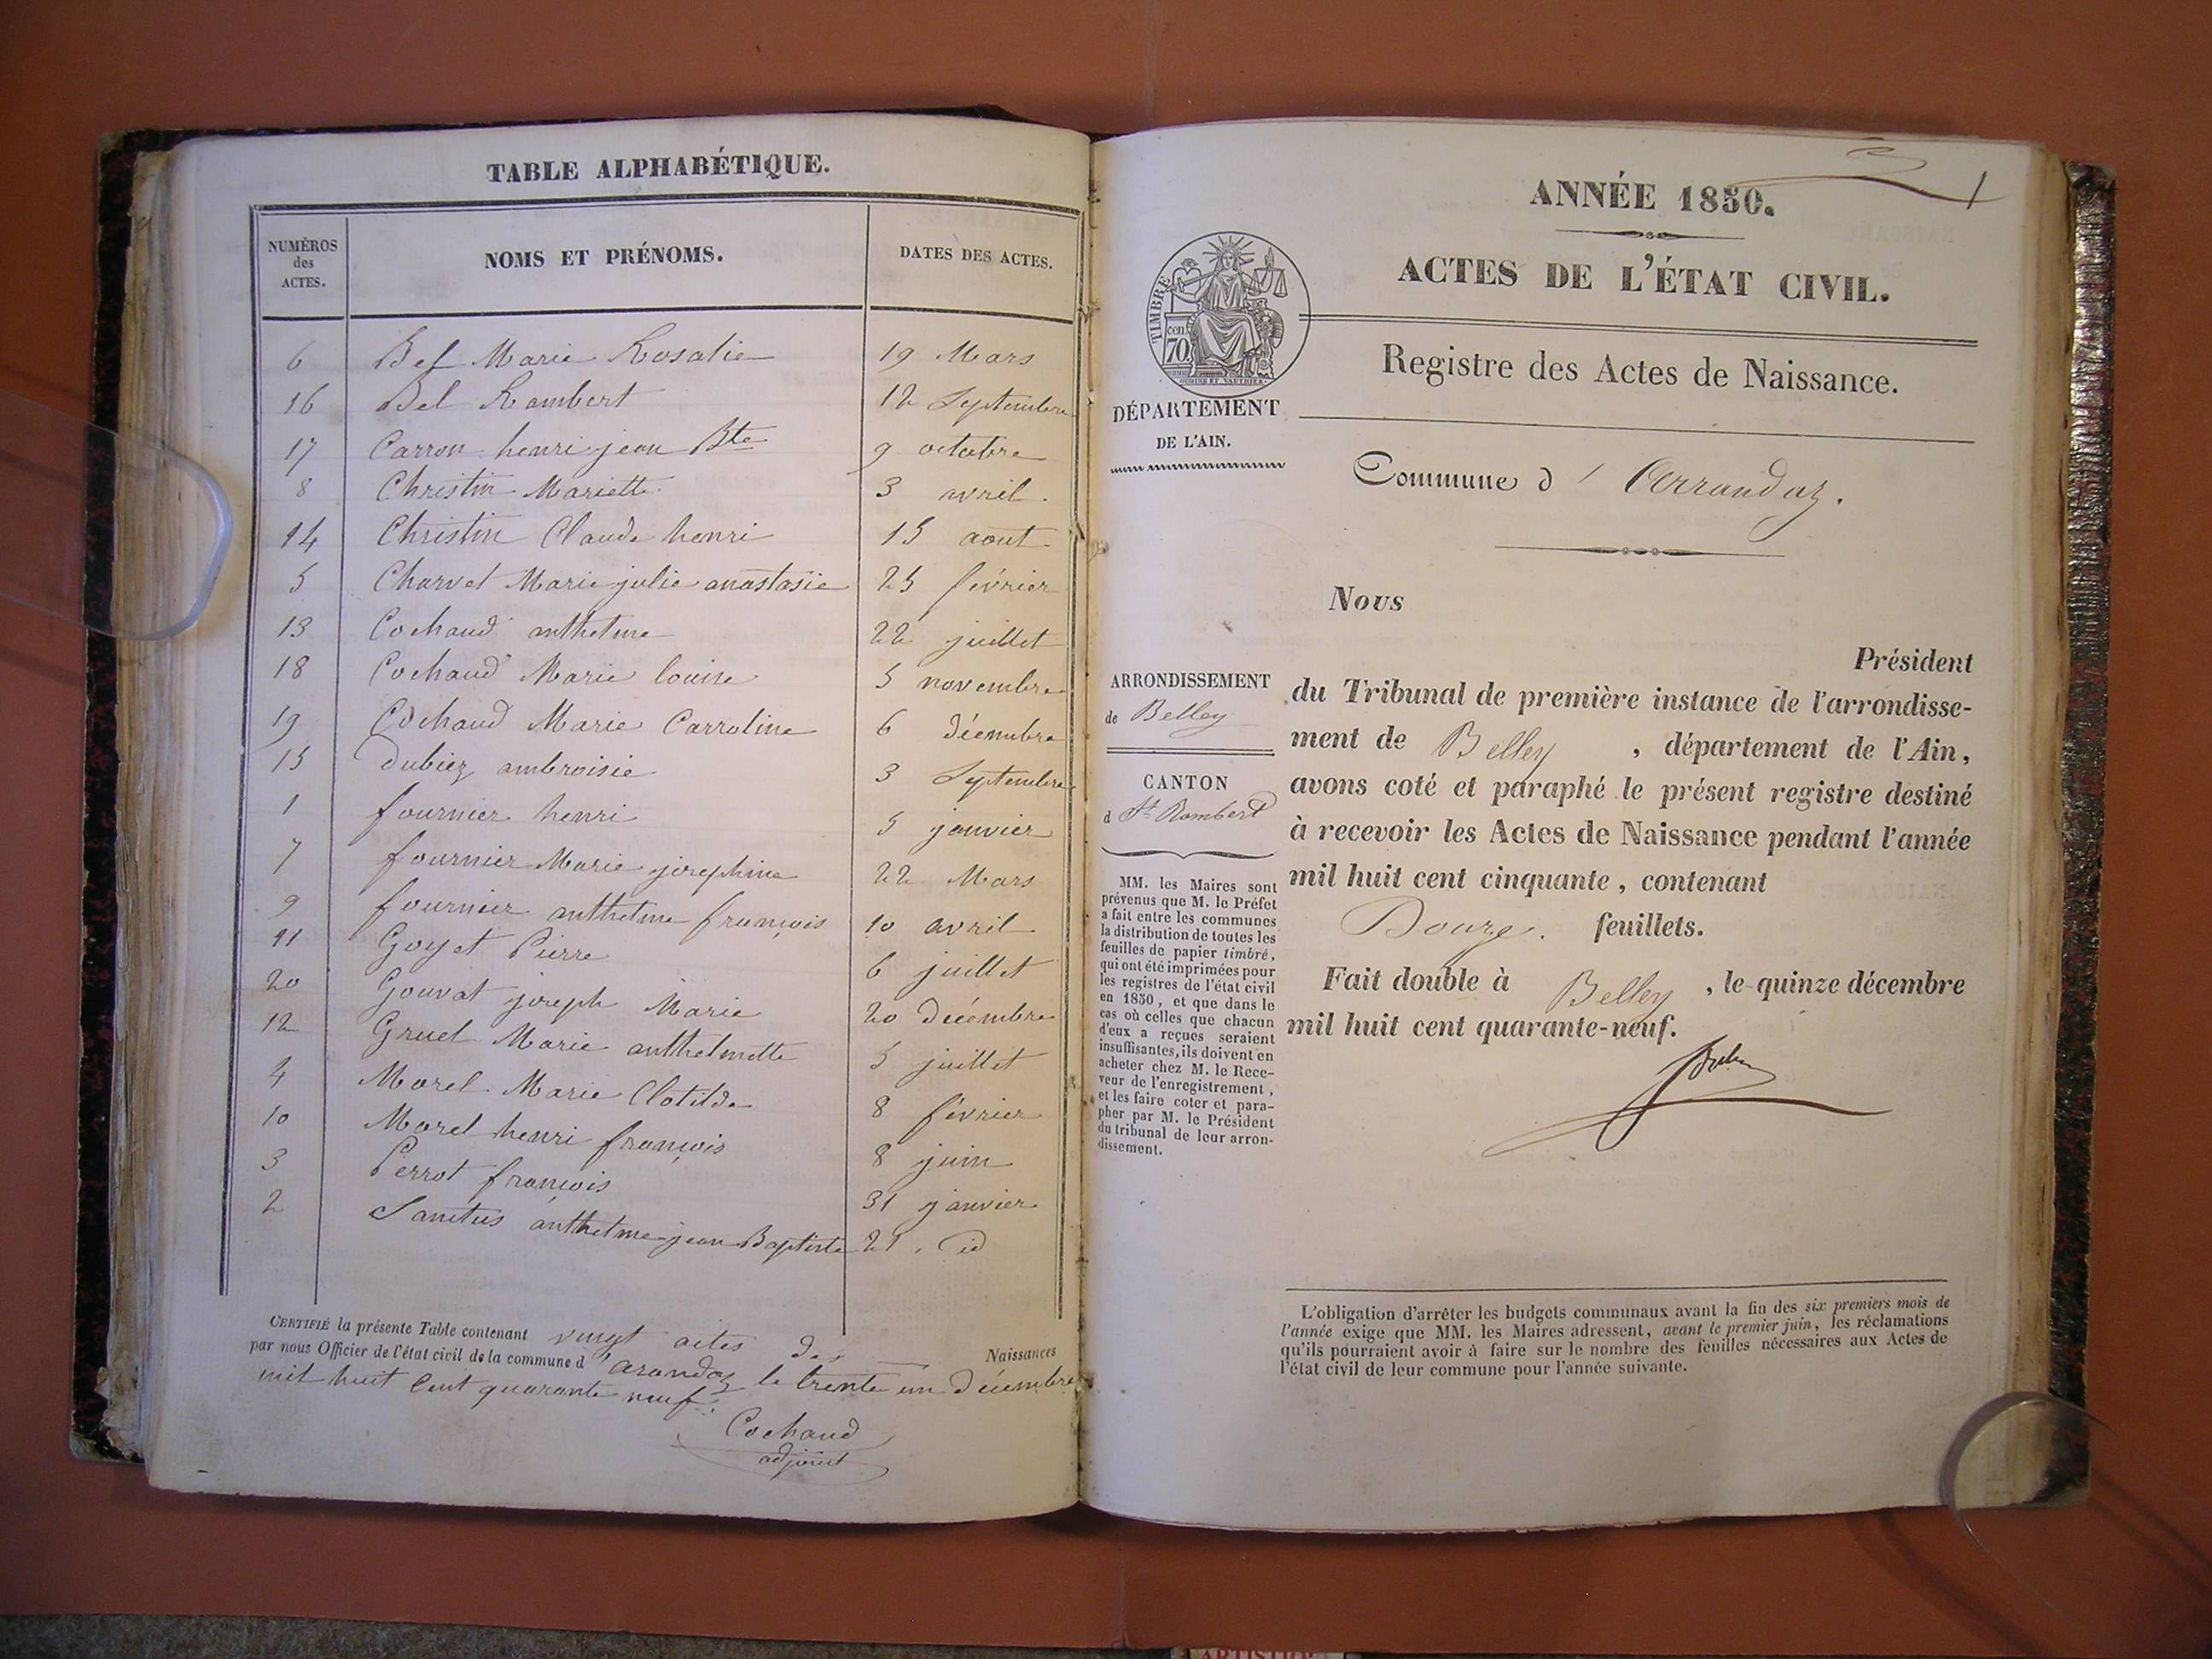 TABLE ALPHABÉTIQUE.
NUMÉROS des ACTES.
NOMS ET PRÉNOMS.
DATES DES ACTES.
6 Bel Marie Rosalie 19 Mars
16 Bel Rambert 12 Septembre
17 Carron henri jean Bte 9 octobre
8 Christin Mariette 3 avril
14 Christin Claude henri 15 aout
5 Charvet Marie julie anastasie 25 février
13 Cochaud anthelme 22 juillet
18 Cochaud Marie louise 5 novembre
19 Cochaud Marie Carroline 6 décembre
15 dubiez ambroisie 3 Septembre
1 fournier henri 5 janvier
7 fournier Marie josephine 22 Mars
9 fournier anthelme françois 10 avril
11 Goyet Pierre 6 juillet
20 Gouvat joseph Marie 20 décembre
12 Gruel Marie anthelmette 5 juillet
4 Morel Marie Clotilde 8 février
10 Morel henri françois 8 juin
3 Perrot françois 31 janvier
2 anthelme jean Baptiste 21 . id
CERTIFIÉ la présente Table contenant vingt actes des Naissances
par nous Officier de l'état civil de la commune d'arandaz le trente un Décembre
mil huit Cent quarante neuf.
Cochaud
adjoint
ANNÉE 1850.
1
ACTES DE L'ÉTAT CIVIL.
TIMBRE
cen. 70
OUDINÉ ET VAUTHIER
Registre des Actes de Naissance.
DÉPARTEMENT
DE L'AIN.
Commune d'Arrandaz.
Nous
Président
du Tribunal de première instance de l'arrondisse-
ment de Belley, département de l'Ain,
avons coté et paraphé le présent registre destiné
à recevoir les Actes de Naissance pendant l'année
mil huit cent cinquante, contenant
Douze. feuillets.
Fait double à Belley, le quinze décembre
mil huit cent quarante-neuf.
ARRONDISSEMENT
de Belley
CANTON
d St Rambert
MM. les Maires sont
prévenus que M. le Préfet
a fait entre les communes
la distribution de toutes les
feuilles de papier timbré,
qui ont été imprimées pour
les registres de l'état civil
en 1850, et que dans le
cas où celles que chacun
d'eux a reçues seraient
insuffisantes, ils doivent en
acheter chez M. le Rece-
veur de l'enregistrement,
et les faire coter et para-
pher par M. le Président
du tribunal de leur arron-
dissement.
L'obligation d'arrêter les budgets communaux avant la fin des six premiers mois de
l'année exige que MM. les Maires adressent, avant le premier juin, les réclamations
qu'ils pourraient avoir à faire sur le nombre des feuilles nécessaires aux Actes de
l'état civil de leur commune pour l'année suivante.